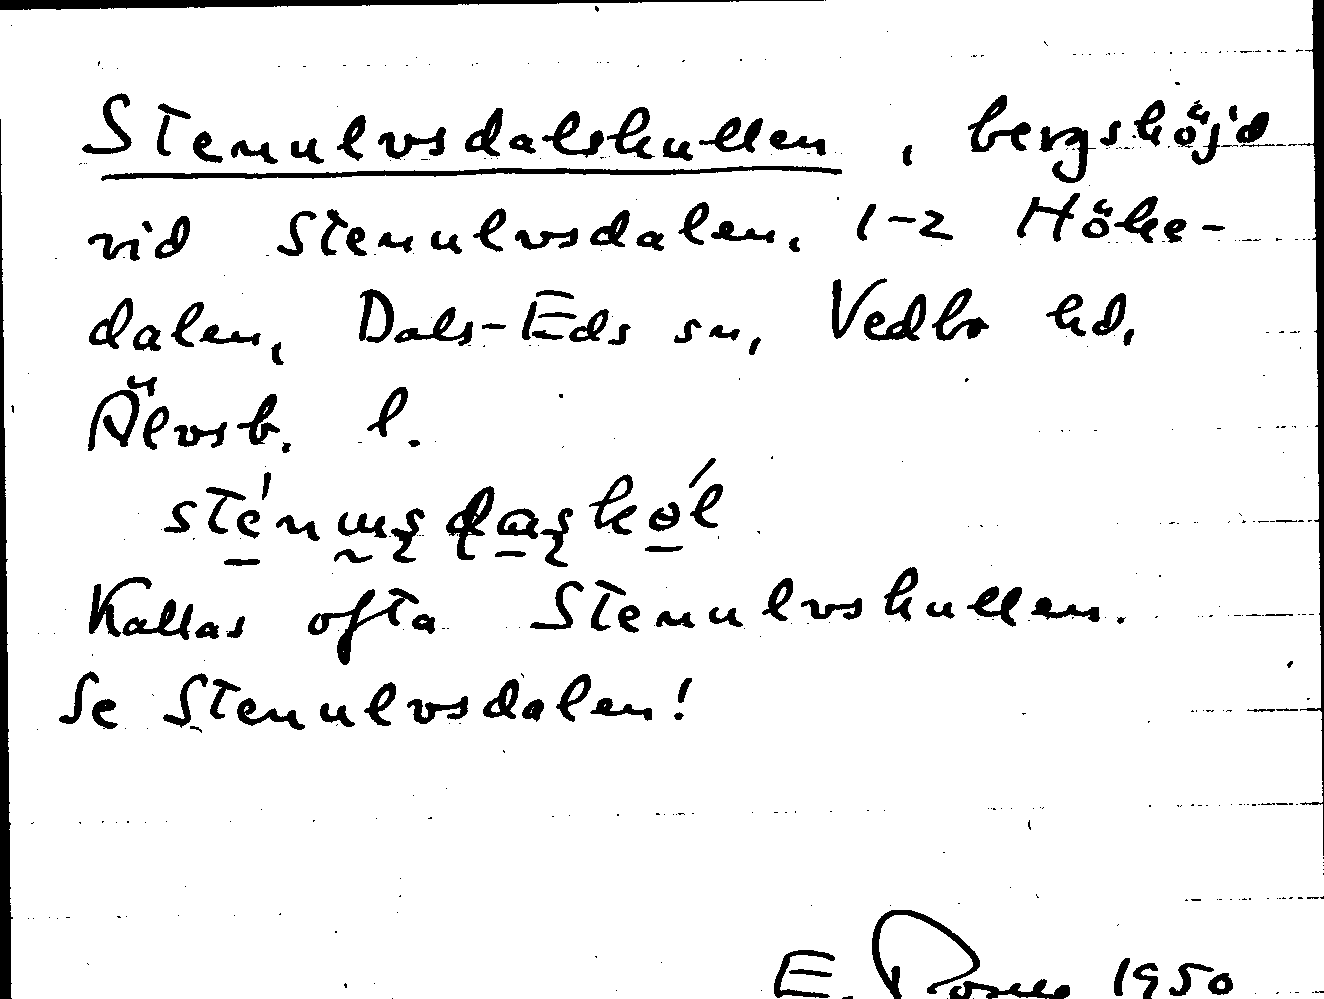 Stenulvsdalskullen, bergshöjd
vid Stenulvsdalen, 1-2 Höke-
dalen, Dals-Eds sn, Vedbo hd,
Älvsb. l.
Kallas ofta Stenulvskullen.
Se Stenulvsdalen!
E. 1950